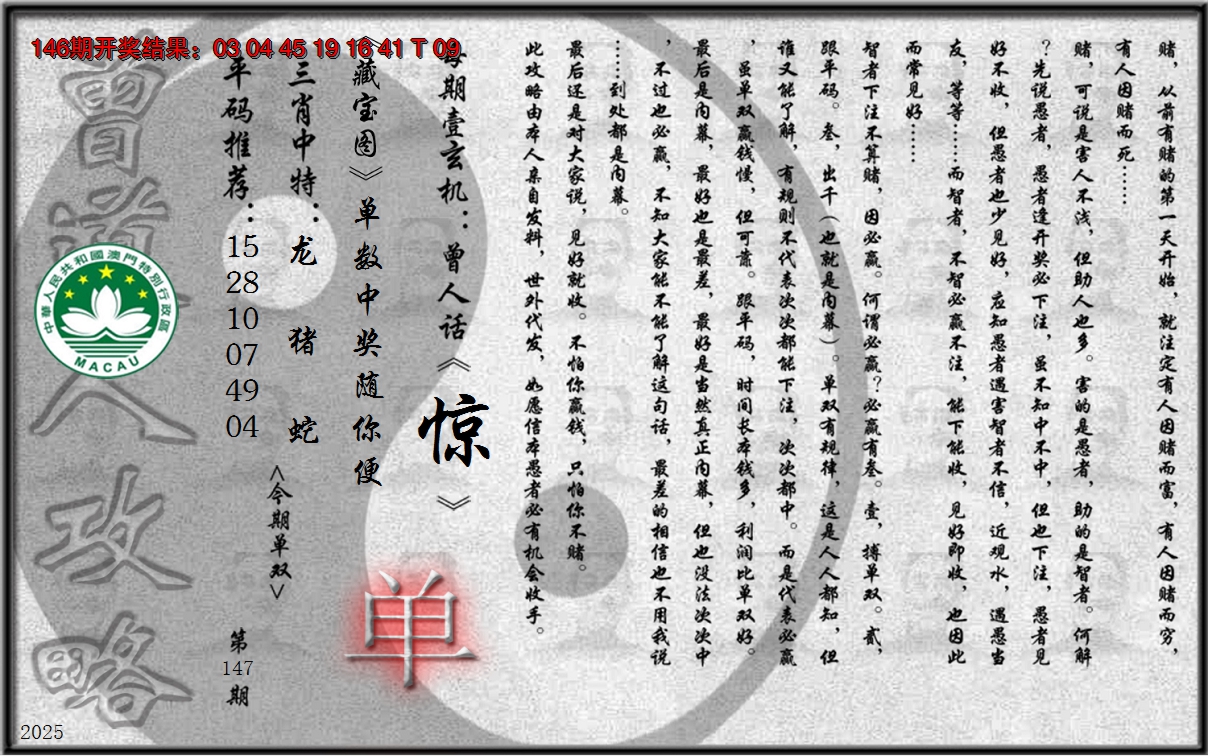 146期开奖结果：03 04 45 19 16 41 T 09
赌，从前有赌的第一天开始，就注定有人因赌而富，有人因赌而穷，
有人因赌而死……
赌，可说是害人不浅，但助人也多。害的是愚者，助的是智者。何解
？先说愚者，愚者逢开奖必下注，虽不知中不中，但也下注，愚者见
好不收，但愚者也少见好，应知愚者遇害智者不信，近观水，遇愚当
友，等等……而智者，不智必赢不注，能下能收，见好即收，也因此
而常见好……
智者下注不算赌，因必赢。何谓必赢？必赢有叁。壹，搏单双。贰，
跟平码。叁，出千（也就是内幕）。单双有规律，这是人人都知，但
谁又能了解，有规则不代表次次都能下注，次次都中。而是代表必赢
，虽单双赢钱慢，但可靠。跟平码，时间长本钱多，利润比单双好。
最后是内幕，最好也是最差，最好是当然真正内幕，但也没法次次中
，不过也必赢，不知大家能不能了解这句话，最差的相信也不用我说
……到处都是内幕。
最后还是对大家说，见好就收。不怕你赢钱，只怕你不赌。
此攻略由本人亲自发料，世外代发，如愿信本愚者必有机会收手。
每期壹玄机：曾人话《惊》
《藏宝图》单数中奖随你便
单
三肖中特：龙 猪 蛇
<今期单双>
平码推荐：15 28 10 07 49 04
第147期
曾道人攻略
中華人民共和國澳門特別行政區
MACAU
2025